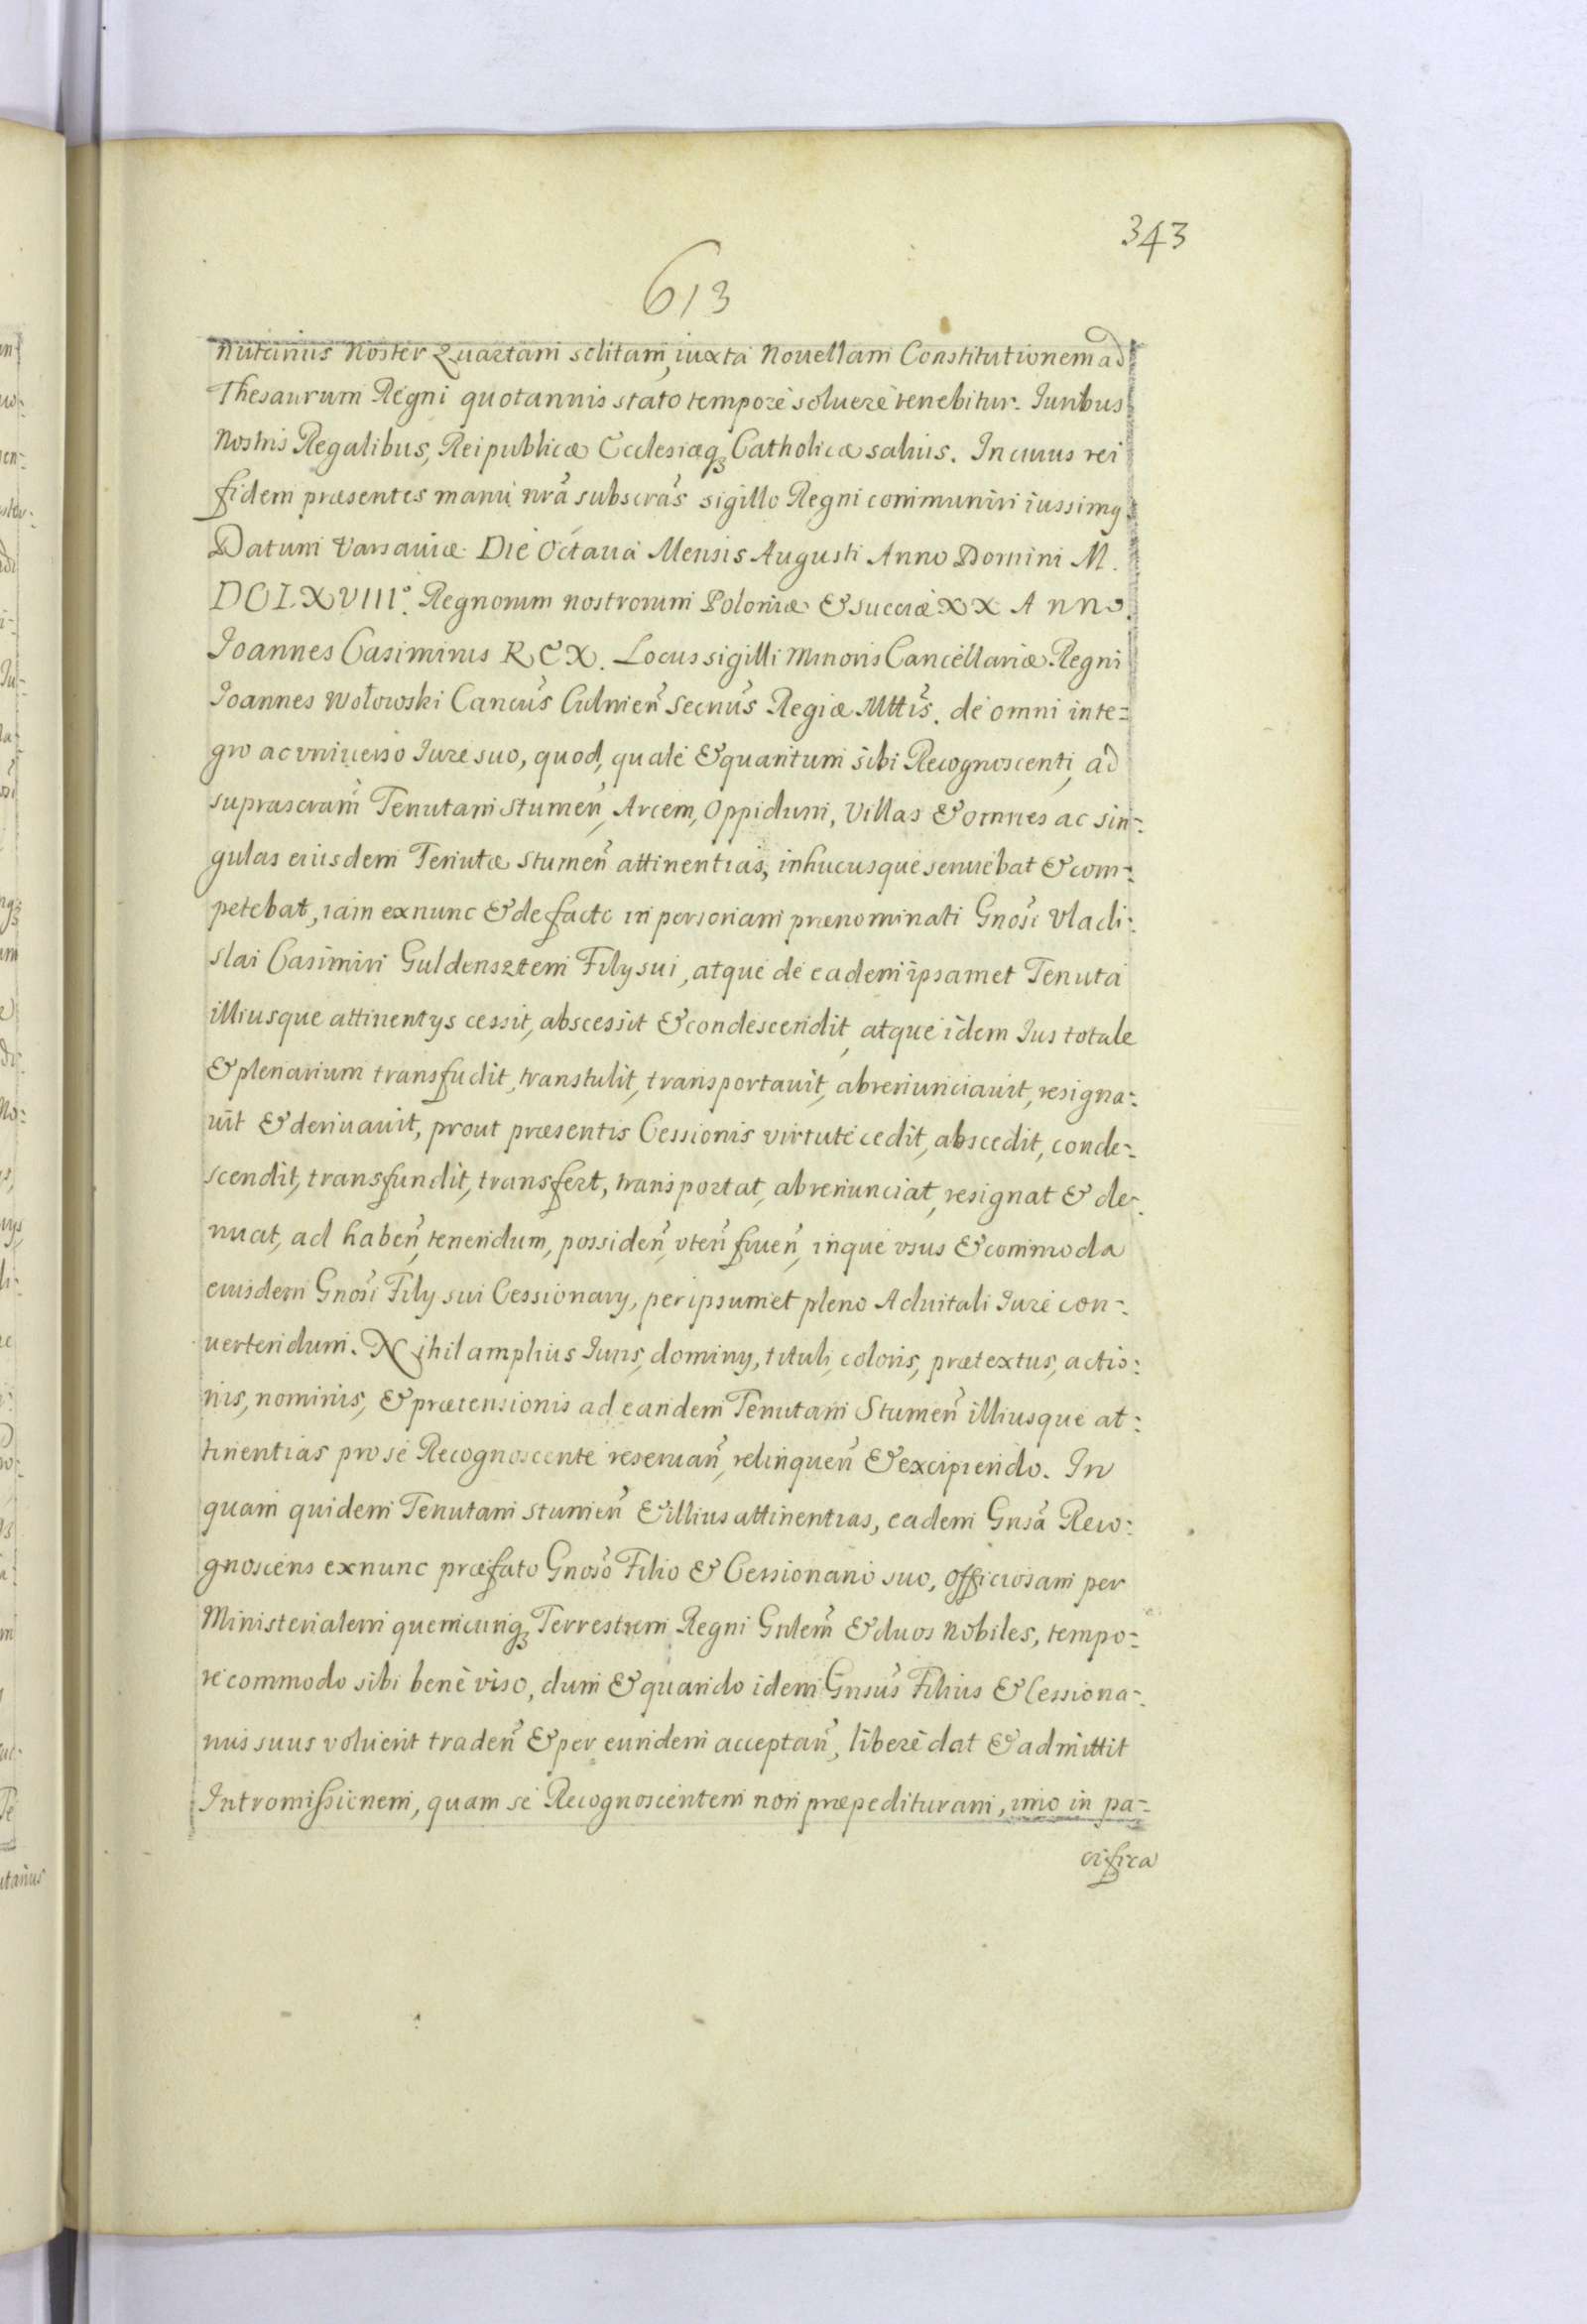 343
613
nutarius Noster Quartam solitam, iuxta Nouellam Constitutionem ad
Thesaurum Regni quotannis stato tempore soluere tenebitur. Iuribus
Nostris Regalibus, Reipublicæ Ecclesiæq; Catholicæ saluis. In cuius rei
fidem præsentes manu nrã subscrãs sigillo Regni communiri iussimq.
Datum Varsauiæ. Die Octaua Mensis Augusti Anno Domini M.
DCLXVIII°. Regnorum nostrorum Poloniæ & Sueciæ XX Anno.
Joannes Casimirus REX. Locus sigilli Minoris Cancellariæ Regni
Joannes Wołowski Cancũs Culmieñ Secriũs Regiæ Mttis̃. de omni inte=
gro ac vniuerso Iure suo, quod, quale & quantum sibi Recognoscenti, ad
suprascram̃ Tenutam Stumeñ, Arcem, Oppidum, Villas & omnes ac sin=
gulas eiusdem Tenutæ Stumeñ attinentias, inhucusque seruiebat & com=
petebat, iam exnunc & de facto in personam prænominati Gnosĩ Vladi=
slai Casimiri Guldensztern Filij sui, atque de eadem ipsamet Tenuta
illiusque attinentijs cessit, abscessit & condescendit, atque idem Ius totale
& plenarium transfudit, transtulit, transportauit, abrenunciauit, resigna=
uit & deriuauit, prout præsentis Cessionis virtute cedit, abscedit, conde=
scendit, transfundit, transfert, transportat, abrenunciat, resignat & de=
riuat, ad habeñ, tenendum, possideñ, vteñ frueñ, inque vsus & commoda
eiusdem Gnosĩ Filij sui Cessionarij, per ipsummet pleno Aduitali Iure con=
uertendum. Nihil amplius Iuris, dominij, tituli, coloris, prætextus, actio=
nis, nominis, & prætensionis ad eandem Tenutam Stumeñ illiusque at=
tinentias pro se Recognoscente reseruañ, relinqueñ & excipiendo. In
quam quidem Tenutam Stumeñ & illius attinentias, eadem Gnsã Reco=
gnoscens exnunc præfato Gnosõ Filio & Cessionario suo, officiosam per
Ministerialem quemcunq; Terrestrem Regni Gnlem̃ & duos Nobiles, tempo=
re commodo sibi bene viso, dum & quando idem Gnsũs Filius & Cessiona=
rius suus voluerit tradeñ & per eundem acceptañ, libere dat & admittit
Intromissionem, quam se Recognoscentem non præpedituram, imo in pa=
cifica